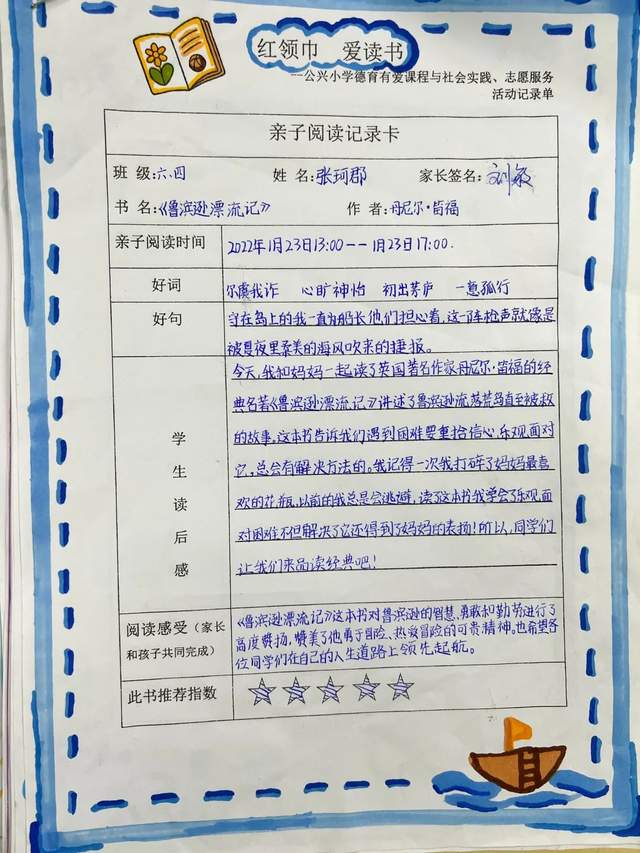 红领巾 爱读书
---公兴小学德育有爱课程与社会实践、志愿服务
活动记录单
亲子阅读记录卡
班 级:六、四 姓 名:张珂郡 家长签名:刘敏
书 名:《鲁滨逊漂流记》 作 者:丹尼尔·笛福
亲子阅读时间 2022年1月23日13:00——1月23日17:00.
好词 尔虞我诈 心旷神怡 初出茅庐 一意孤行
好句 守在岛上的我一直为船长他们担心着,这一阵枪声就像是
被晨夜里柔美的海风吹来的捷报。
学生读后感
今天,我和妈妈一起读了英国著名作家丹尼尔·笛福的经
典名著《鲁滨逊漂流记》讲述了鲁滨逊流荡荒岛直至被救
的故事,这本书告诉我们遇到困难要重拾信心,乐观面对
它,总会有解决方法的,我记得一次我打碎了妈妈最喜
欢的花瓶,以前的我总是会逃避,读了这本书我学会了乐观,面
对困难不但解决了它还得到了妈妈的表扬!所以,同学们
让我们来品读经典吧!
阅读感受(家长
和孩子共同完成)
《鲁滨逊漂流记》这本书对鲁滨逊的智慧、勇敢和勤劳进行了
高度赞扬,赞美了他勇于冒险、热爱冒险的可贵精神。也希望各
位同学们在自己的人生道路上领先起航。
此书推荐指数